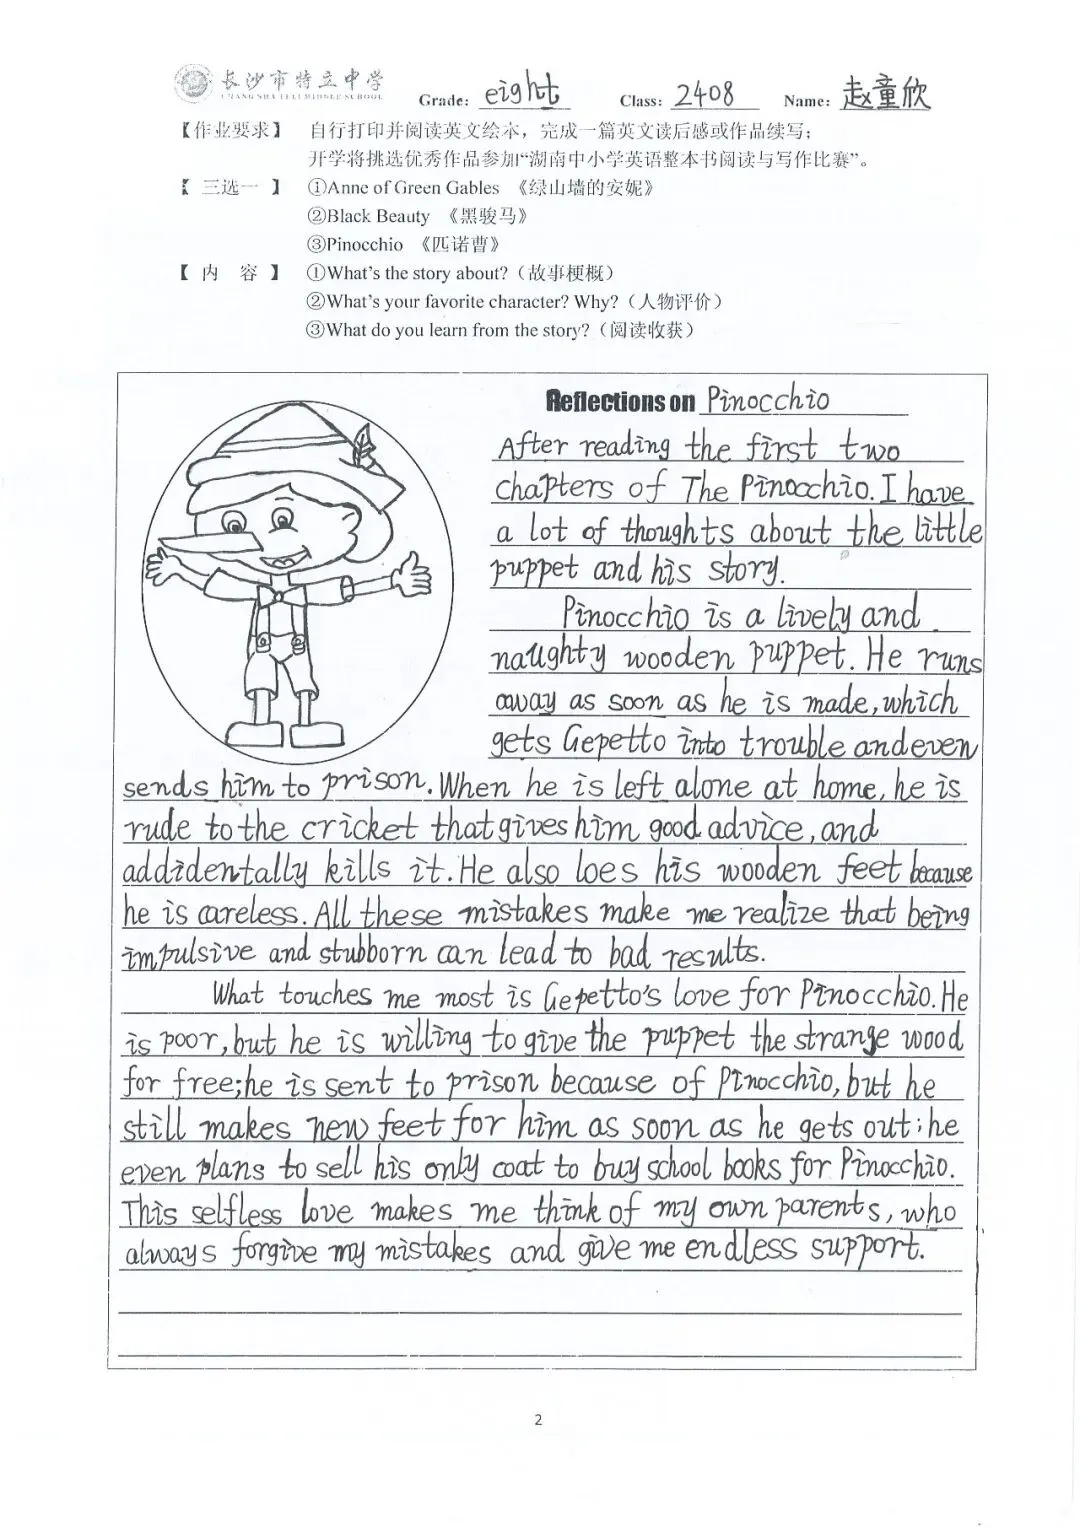 长沙市特立中学
CHANG SHA TELI MIDDLE SCHOOL
Grade: eight Class: 2408 Name: 赵童欣
【作业要求】 自行打印并阅读英文绘本，完成一篇英文读后感或作品续写；
开学将挑选优秀作品参加“湖南中小学英语整本书阅读与写作比赛”。
【 三选一 】 ①Anne of Green Gables 《绿山墙的安妮》
②Black Beauty 《黑骏马》
③Pinocchio 《匹诺曹》
【 内 容 】 ①What's the story about?（故事梗概）
②What's your favorite character? Why?（人物评价）
③What do you learn from the story?（阅读收获）
Reflections on Pinocchio
After reading the first two
chapters of The Pinocchio. I have
a lot of thoughts about the little
puppet and his story.
Pinocchio is a lively and
naughty wooden puppet. He runs
away as soon as he is made, which
gets Gepetto into trouble and even
sends him to prison. When he is left alone at home, he is
rude to the cricket that gives him good advice, and
addidentally kills it. He also loes his wooden feet because
he is careless. All these mistakes make me realize that being
impulsive and stubborn can lead to bad results.
What touches me most is Gepetto's love for Pinocchio. He
is poor, but he is willing to give the puppet the strange wood
for free; he is sent to prison because of Pinocchio, but he
still makes new feet for him as soon as he gets out; he
even plans to sell his only coat to buy school books for Pinocchio.
This selfless love makes me think of my own parents, who
always forgive my mistakes and give me endless support.
2